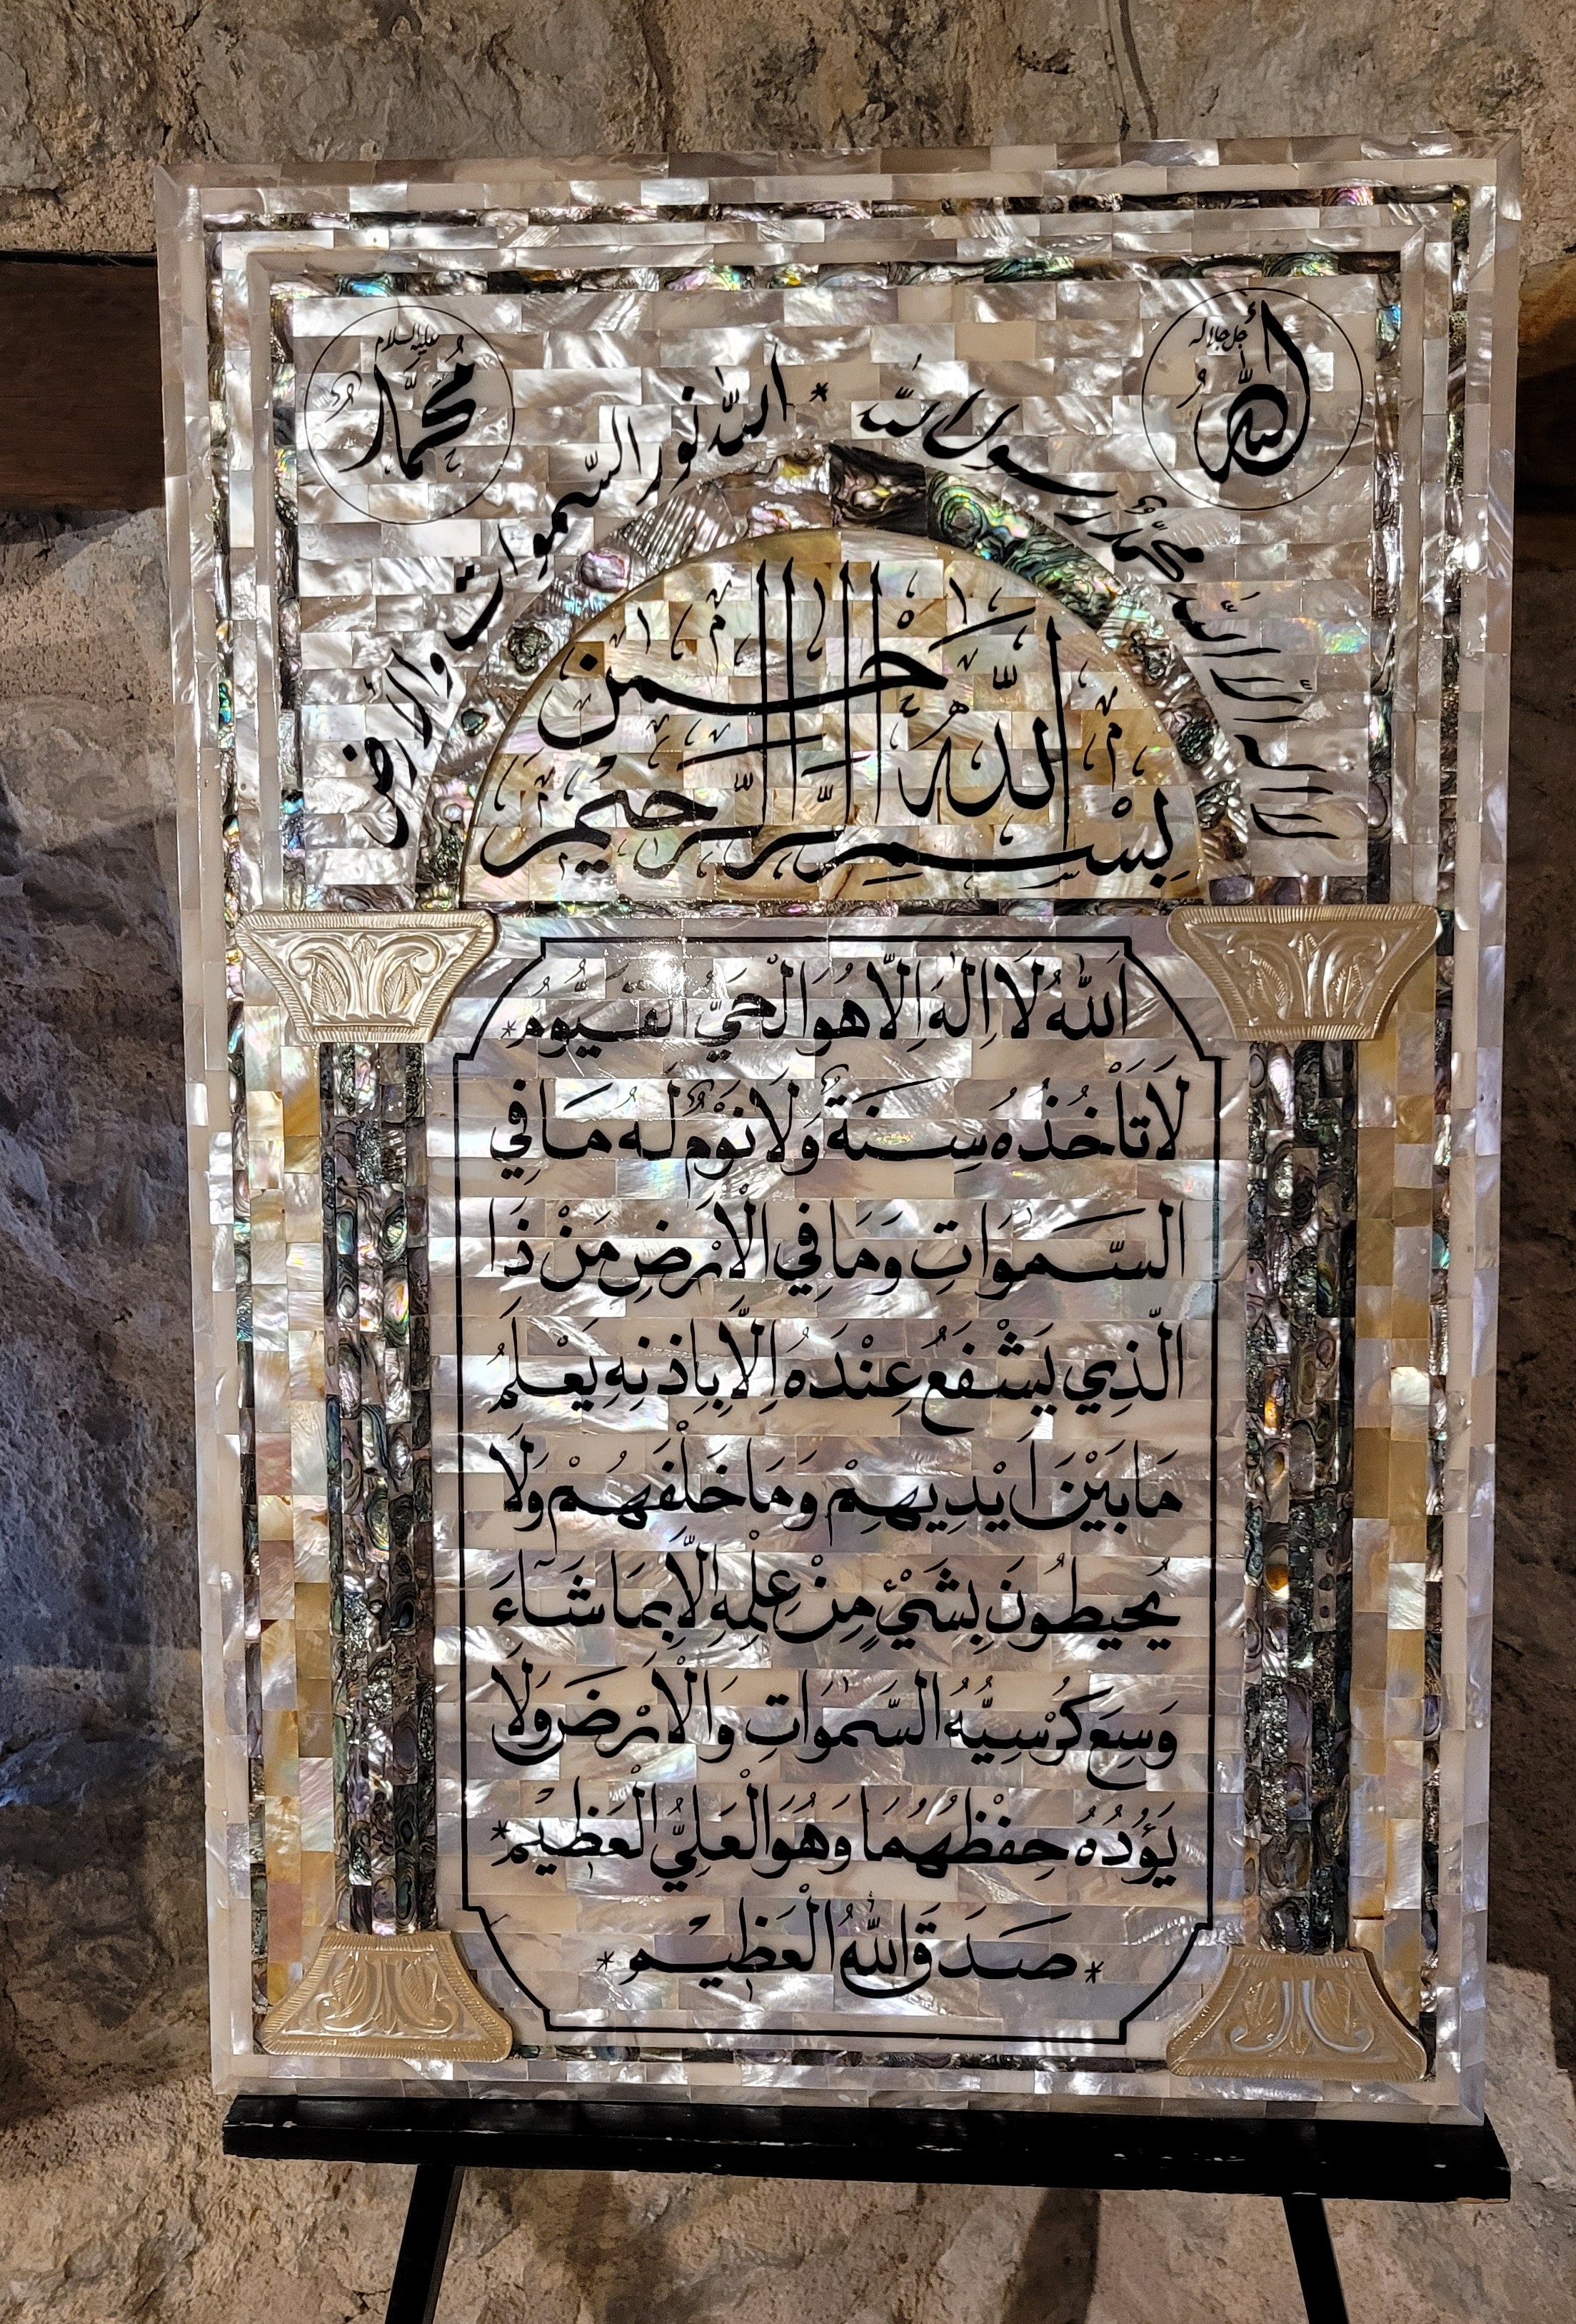 الله جل جلاله
محمد عليه السلام
لا إله إلا الله محمد رسول الله * الله نور السموات والأرض
بِسْمِ اللهِ الرَّحْمٰنِ الرَّحِيمِ
اَللهُ لَا اِلٰهَ اِلَّا هُوَ الْحَيُّ الْقَيُّومُ *
لَا تَأْخُذُهُ سِنَةٌ وَلَا نَوْمٌ لَهُ مَا فِي
السَّمٰوَاتِ وَمَا فِي الْاَرْضِ مَنْ ذَا
الَّذِي يَشْفَعُ عِنْدَهُ اِلَّا بِاِذْنِهِ يَعْلَمُ
مَا بَيْنَ اَيْدِيهِمْ وَمَا خَلْفَهُمْ وَلَا
يُحِيطُونَ بِشَيْءٍ مِنْ عِلْمِهِ اِلَّا بِمَا شَاءَ
وَسِعَ كُرْسِيُّهُ السَّمٰوَاتِ وَالْاَرْضَ وَلَا
يَؤُدُهُ حِفْظُهُمَا وَهُوَ الْعَلِيُّ الْعَظِيمُ *
* صَدَقَ اللهُ الْعَظِيم *